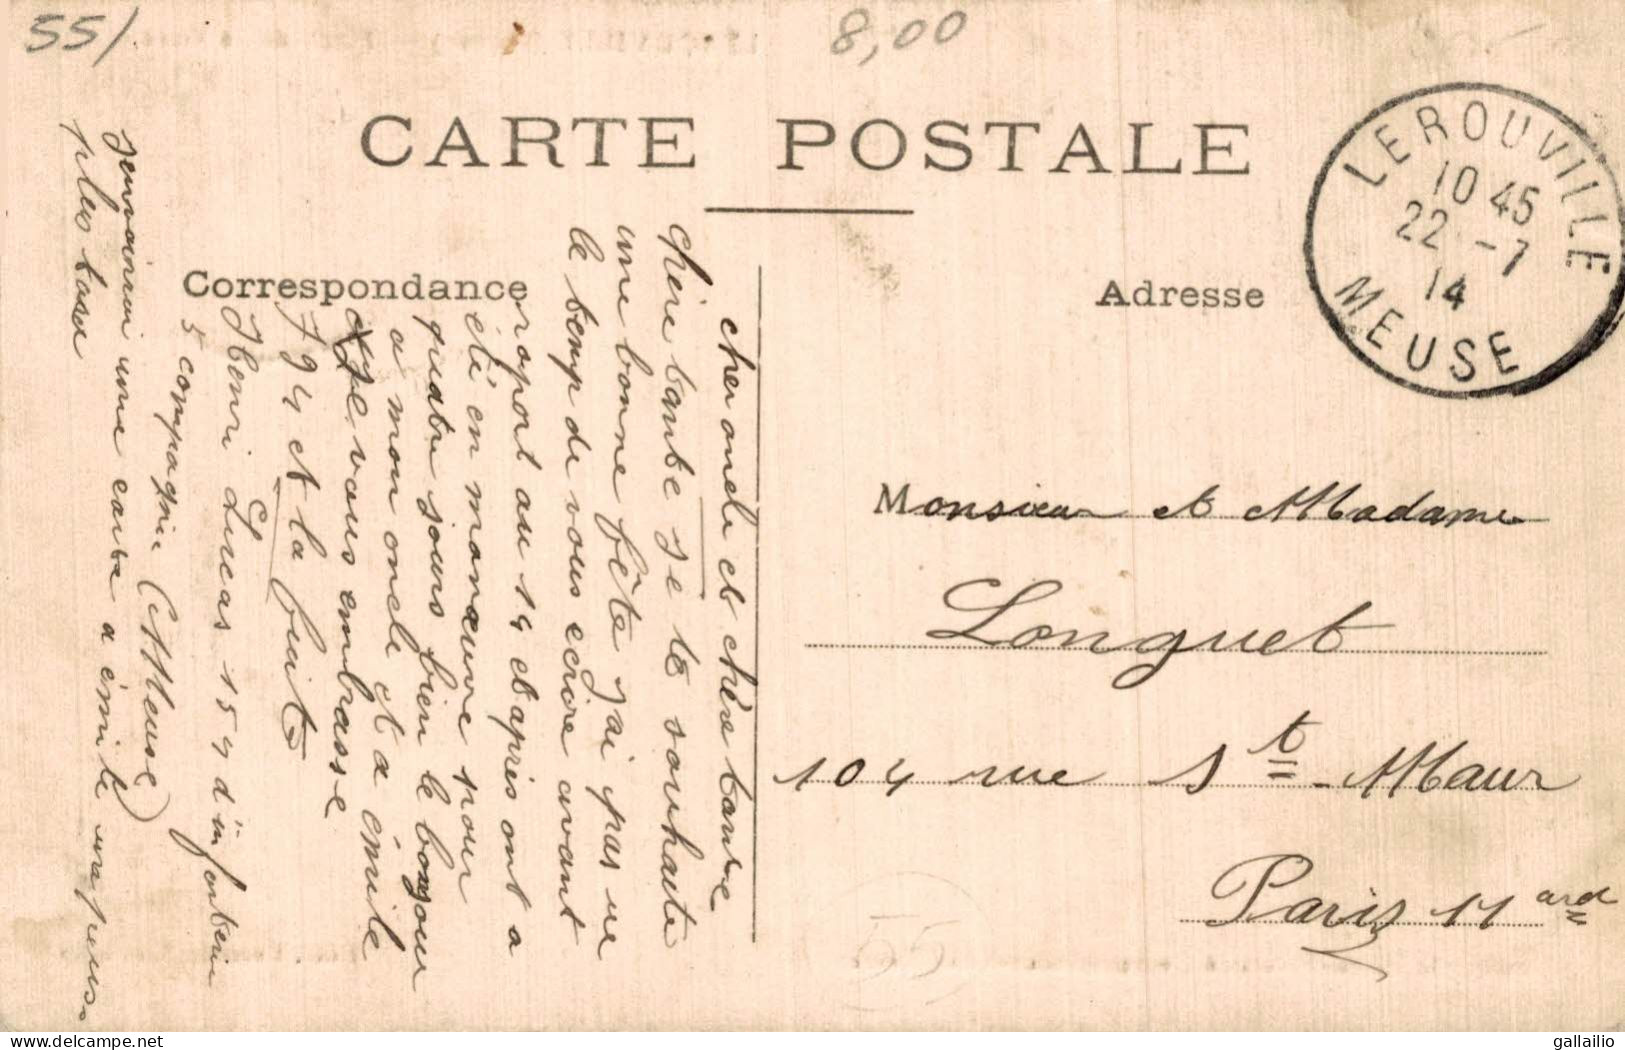 55/
8,00
CARTE POSTALE
Correspondance
Adresse
LEROUVILLE
10 45
22 -7
14
MEUSE
cher oncle et chère tante
chère tante je te souhaite
une bonne fête j'ai pas ue
le temp de vous ecrire avant
raport au 14 et après ont a
été en manœuvre pour
quatre jours bien le bonjour
a mon oncle et a émile
je vous embrasse
J 94 et la fuite
Henri Lucas 154 d'infanterie
5 compagnie (Meuse)
une carte a émile un peu
plus tard
Monsieur et Madame
Longuet
104 rue St-Maur
Paris 11 ard
55
delcampe.net
gallailio